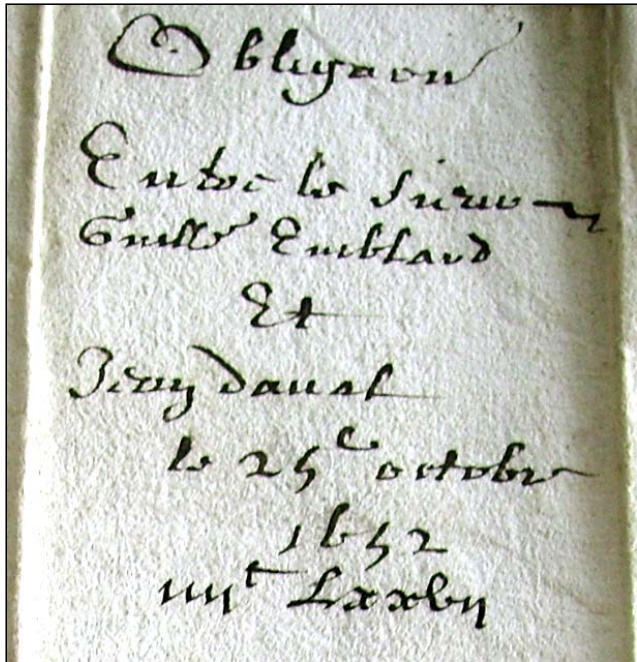 Obligaon
Entre le sieur
Guille Emblard
Et
Jean daual
le 25e octobre
1652
iiijc Lxxvij